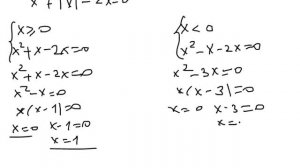 x² + |x| - 2x = 0
x ≥ 0
x² + x - 2x = 0
x² + x - 2x = 0
x² - x = 0
x(x-1) = 0
x = 0 x - 1 = 0
x = 1
x < 0
x² - x - 2x = 0
x² - 3x = 0
x(x-3) = 0
x = 0 x - 3 = 0
x =